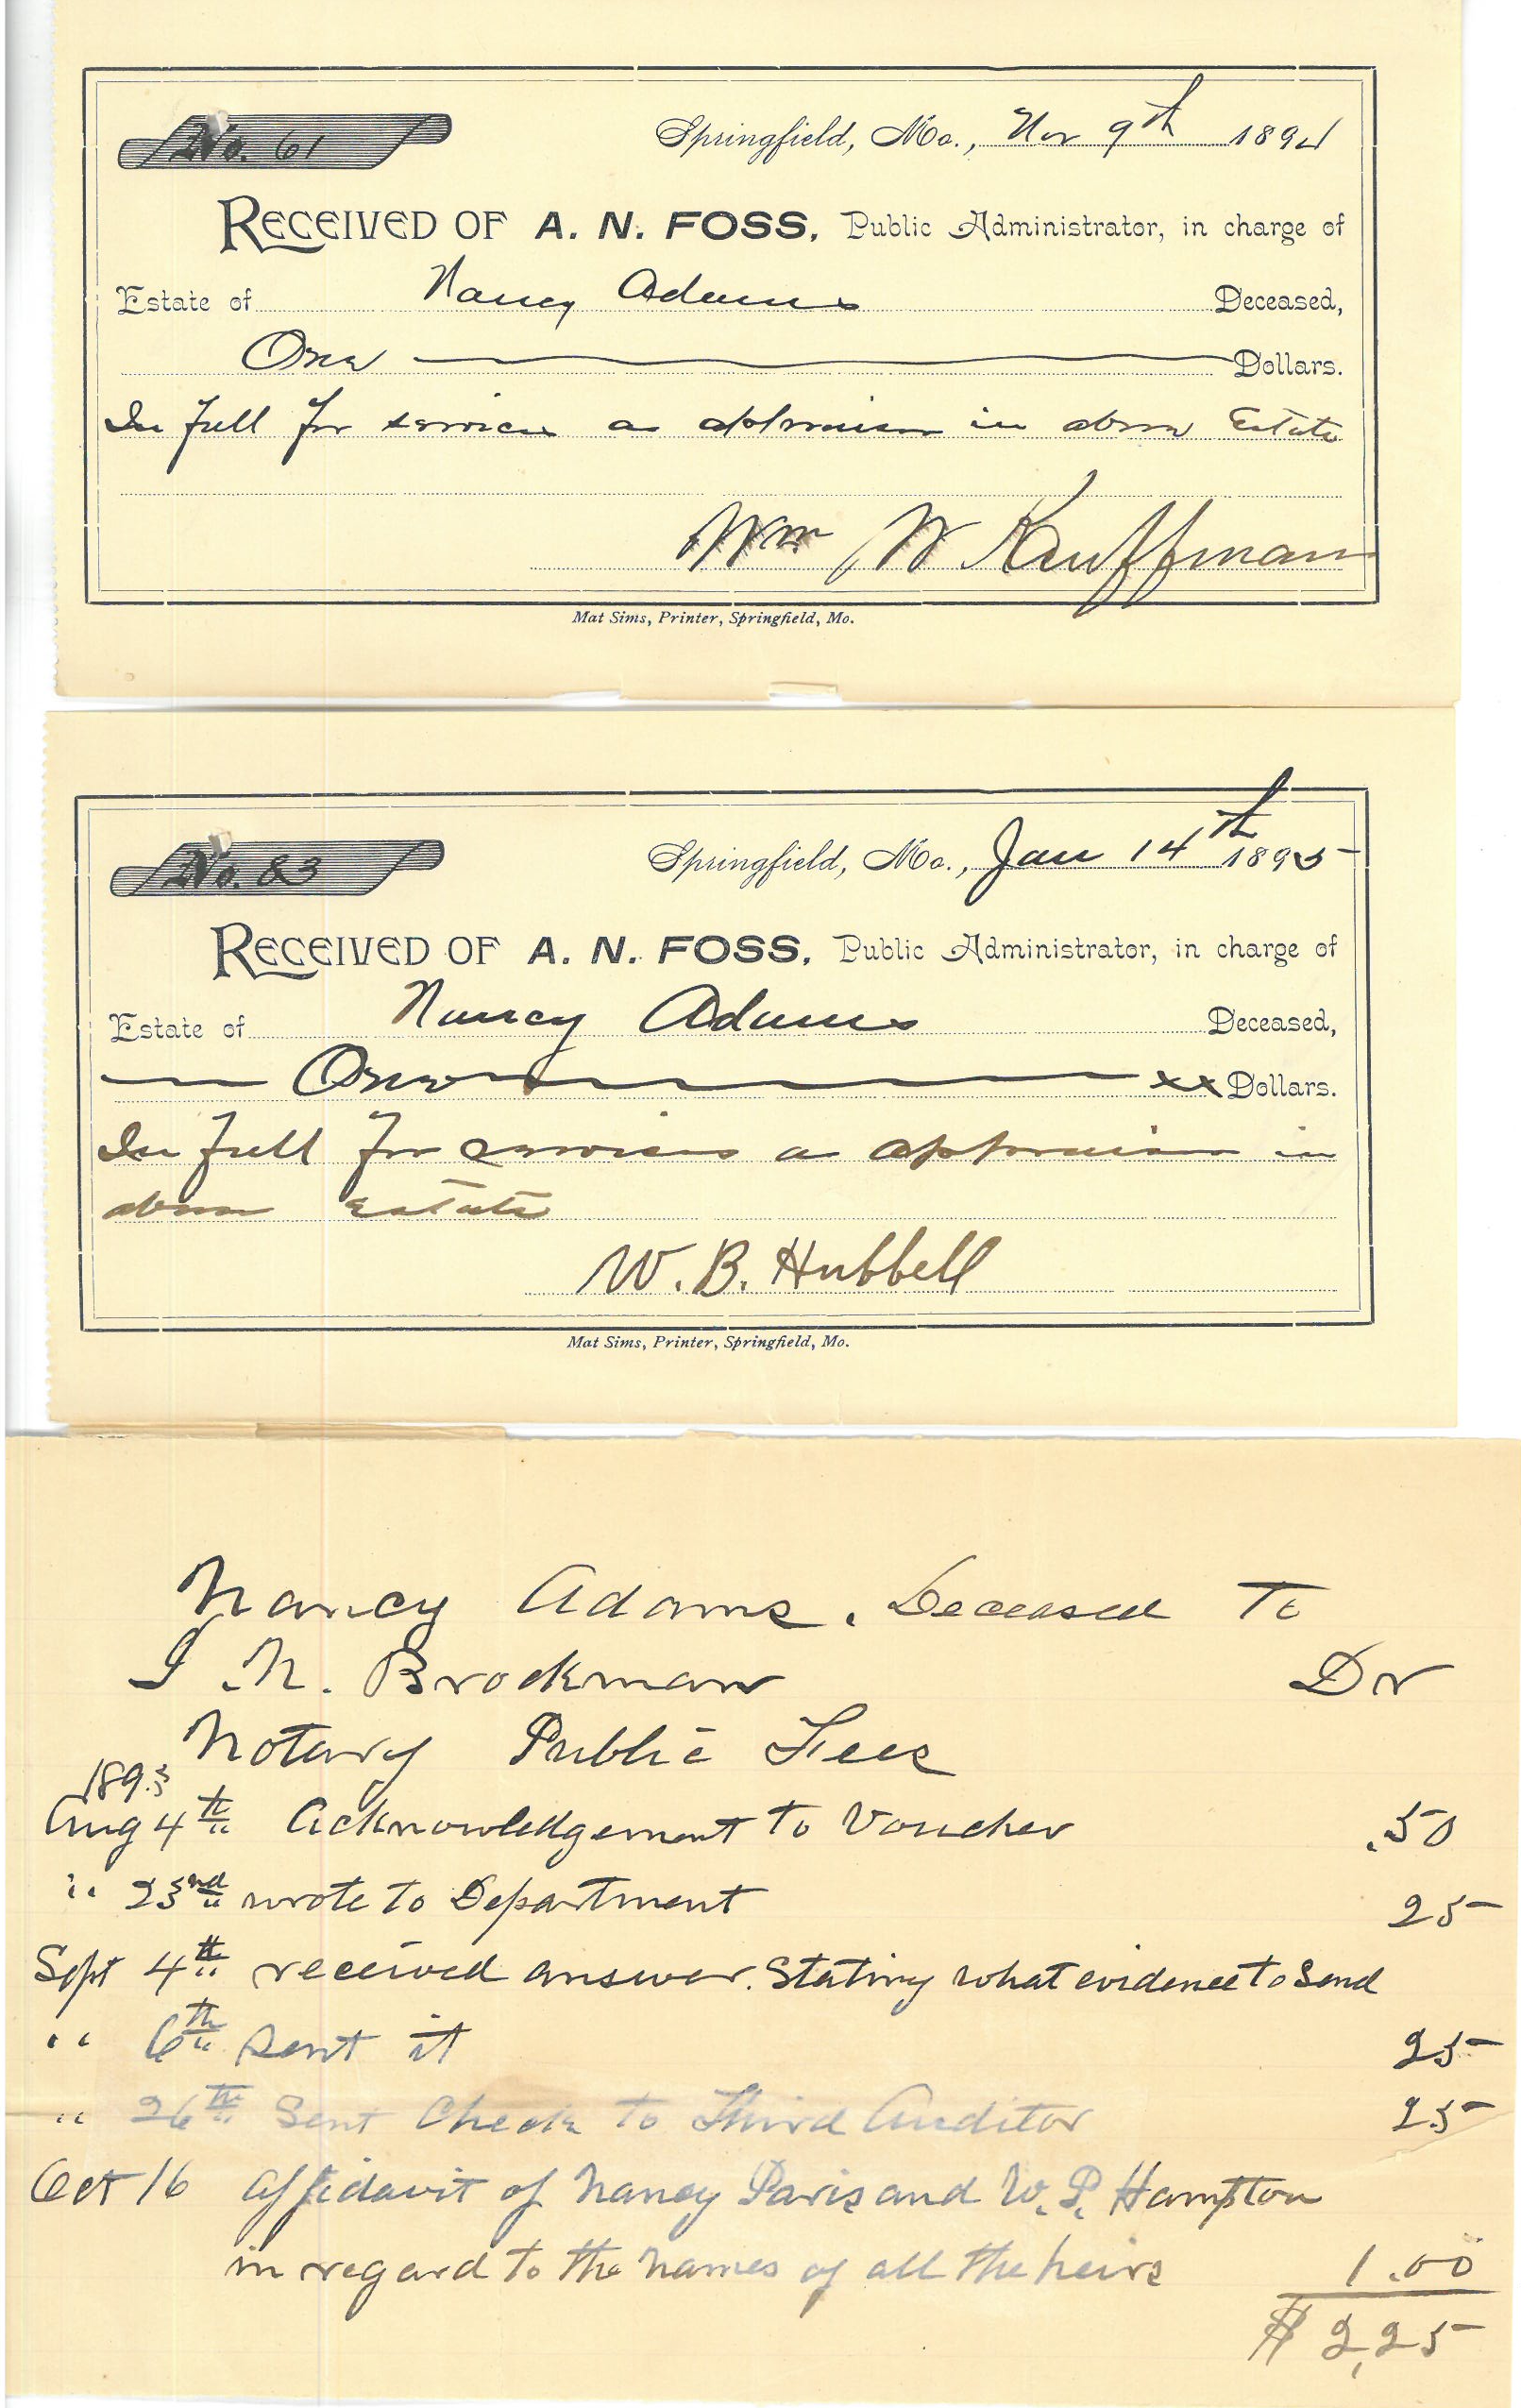 No. 61
Springfield, Mo., Nov 9th 1894
RECEIVED OF A. N. FOSS, Public Administrator, in charge of
Estate of Nancy Adams Deceased,
One Dollars.
In full for services as appraiser in above Estate
Wm W Kauffman
Mat Sims, Printer, Springfield, Mo.
No. 83
Springfield, Mo., Jan 14th 1895
RECEIVED OF A. N. FOSS, Public Administrator, in charge of
Estate of Nancy Adams Deceased,
One xx Dollars.
In full for services as appraiser in
above Estate
W. B. Hubbell
Mat Sims, Printer, Springfield, Mo.
Nancy Adams. Deceased To
I. N. Brockman Dr
Notary Public Fees
1893
Aug 4th Acknowledgement to Voucher .50
" 23nd wrote to Department 25
Sept 4th received answer. Stating what evidence to Send
" 6th Sent it 25
" 26th Sent Check to Third Auditor 25
Oct 16 affidavit of Nancy Paris and W. P. Hampton
in regard to the names of all the heirs 1.00
$ 2,25